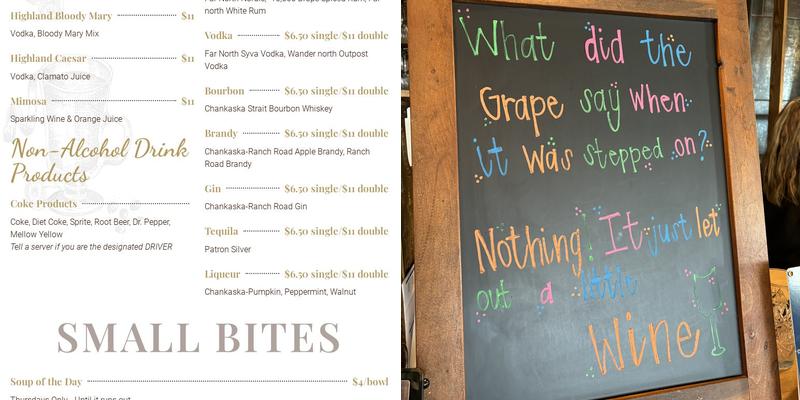 Highland Bloody Mary $11
Vodka, Bloody Mary Mix
Highland Caesar $11
Vodka, Clamato Juice
Mimosa $11
Sparkling Wine & Orange Juice
Non-Alcohol Drink
Products
Coke Products
Coke, Diet Coke, Sprite, Root Beer, Dr. Pepper,
Mellow Yellow
Tell a server if you are the designated DRIVER
north White Rum
Vodka $6.50 single/$11 double
Far North Syva Vodka, Wander north Outpost
Vodka
Bourbon $6.50 single/$11 double
Chankaska Strait Bourbon Whiskey
Brandy $6.50 single/$11 double
Chankaska-Ranch Road Apple Brandy, Ranch
Road Brandy
Gin $6.50 single/$11 double
Chankaska-Ranch Road Gin
Tequila $6.50 single/$11 double
Patron Silver
Liqueur $6.50 single/$11 double
Chankaska-Pumpkin, Peppermint, Walnut
SMALL BITES
Soup of the Day $4/bowl
What did the
Grape say when
it was stepped on?
Nothing! It just let
out a little
wine